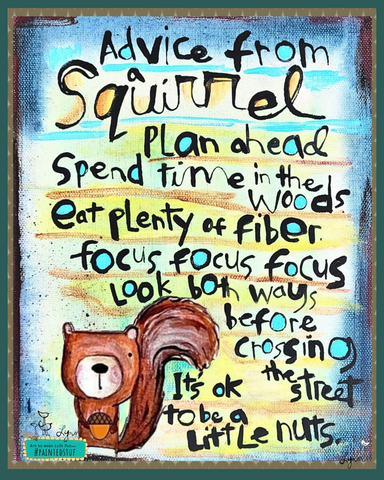 Advice from
a
Squirrel
Plan ahead
Spend time in the
woods.
eat plenty of fiber.
focus focus focus
Look both ways
before
crossing
the street
It's ok
to be a
Little nuts.
#PAINTEDSTUF